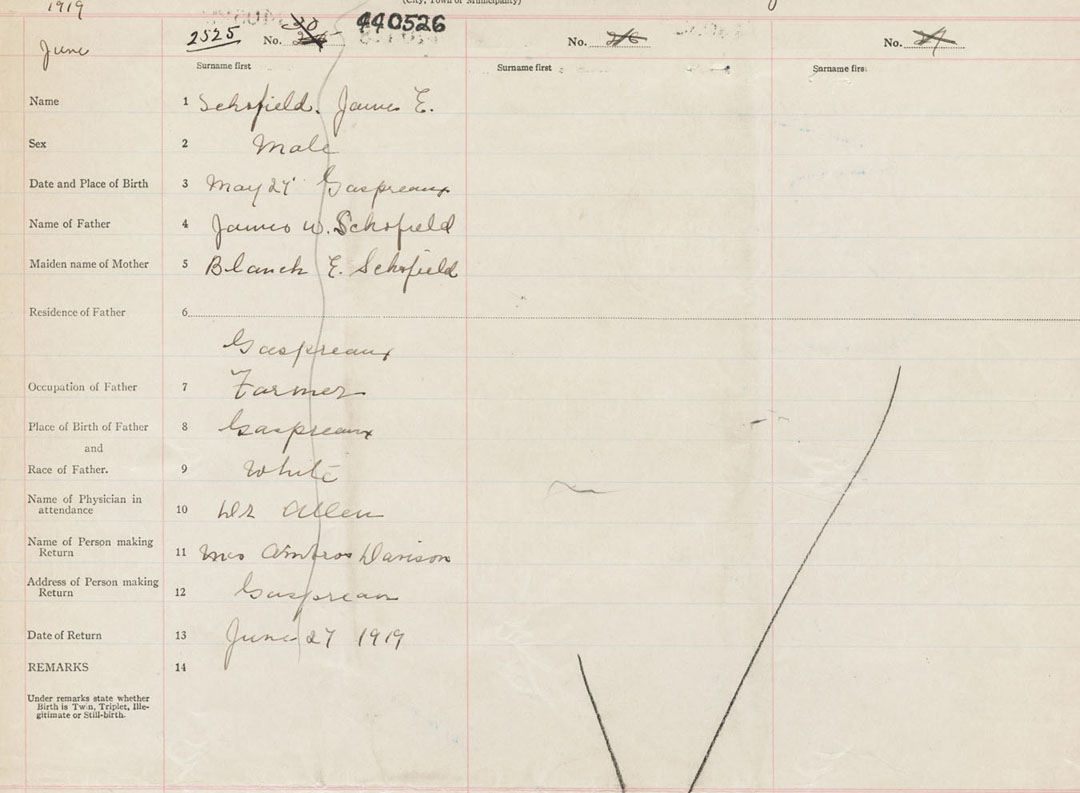 1919
(City, Town or Municipality)
June
2525 No. 20 440526 No. 26 No. 27
Surname first Surname first Surname first
Name 1 Schofield. James E.
Sex 2 Male
Date and Place of Birth 3 May 27 Gaspreaux
Name of Father 4 James W. Schofield
Maiden name of Mother 5 Blanch E. Schofield
Residence of Father 6
Gaspreaux
Occupation of Father 7 Farmer
Place of Birth of Father 8 Gaspreaux
and
Race of Father. 9 White
Name of Physician in
attendance 10 Dr Allen
Name of Person making
Return 11 Mrs Davison
Address of Person making
Return 12 Gaspreau
Date of Return 13 June 27 1919
REMARKS 14
Under remarks state whether
Birth is Twin, Triplet, Ille-
gitimate or Still-birth.